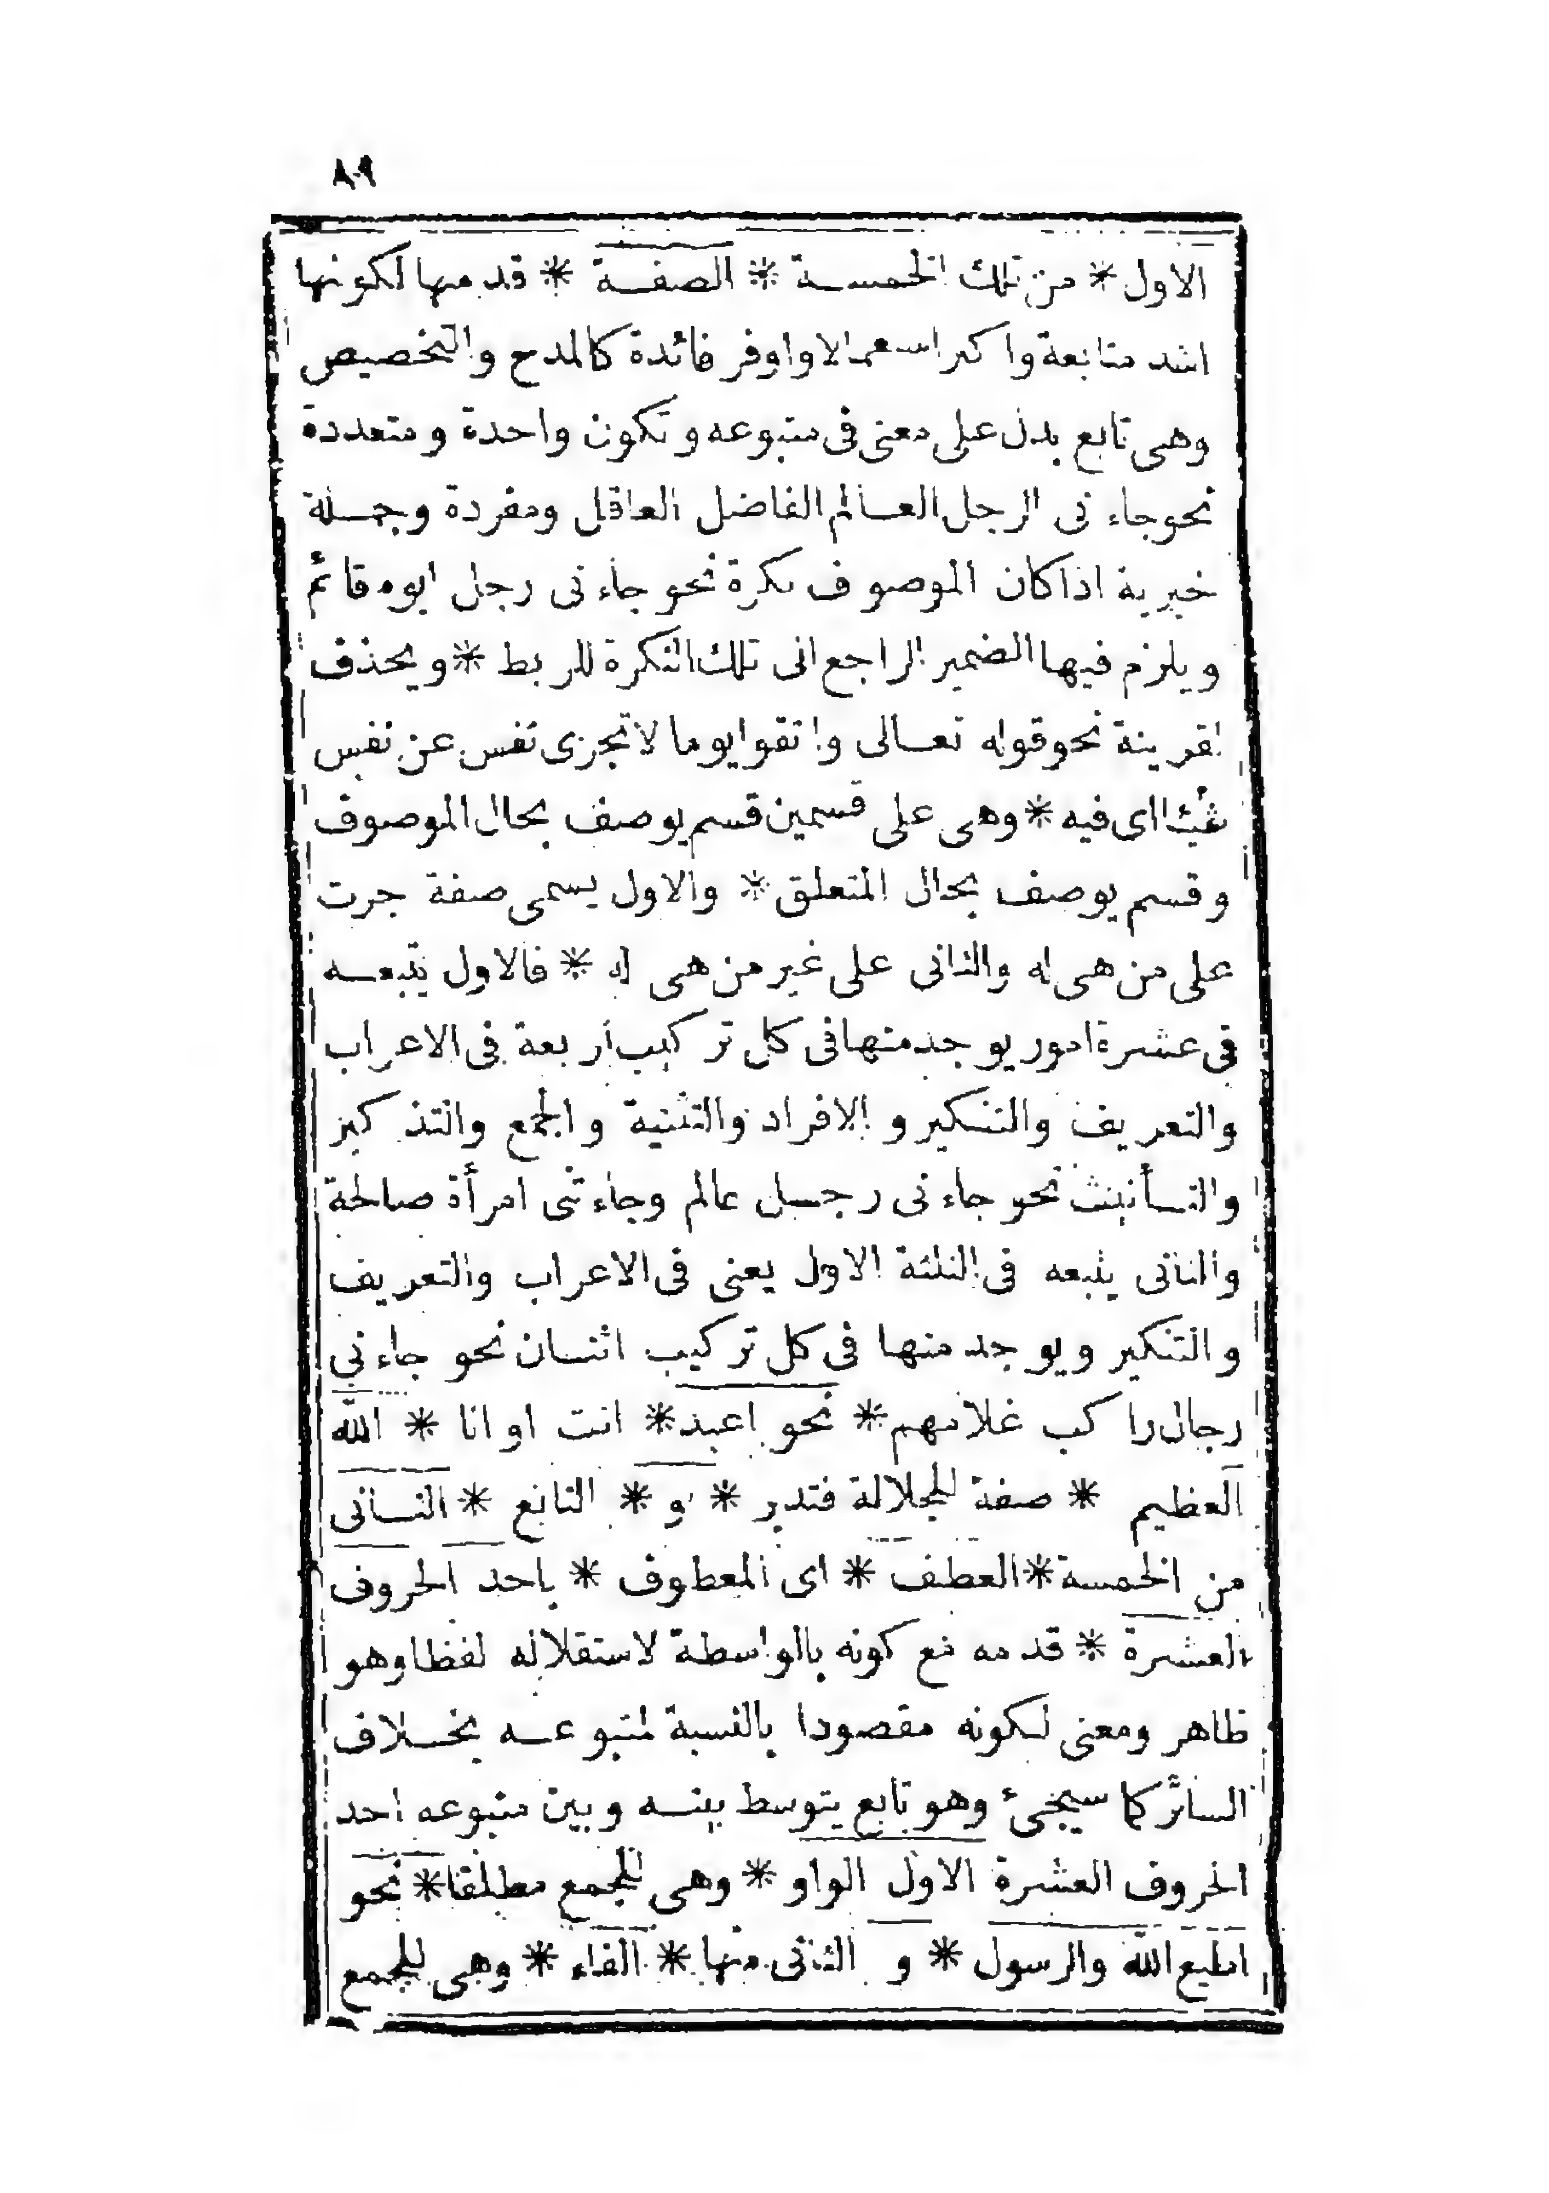 ٨٩
الاول * من تلك الخمسة * الصفة * قدمها لكونها
اشد متابعة واكثر استعمالا واوفر فائدة كالمدح والتخصيص
وهى تابع يدل على معنى فى متبوعه وتكون واحدة ومتعددة
نحو جاءنى الرجل العالم الفاضل العاقل ومفردة وجملة
خبرية اذا كان الموصوف نكرة نحو جاءنى رجل ابوه قائم
ويلزم فيها الضمير الراجع الى تلك النكرة للربط * ويحذف
لقرينة نحو قوله تعالى واتقوا يوما لا تجزى نفس عن نفس
شيئا اى فيه * وهى على قسمين قسم يوصف بحال الموصوف
وقسم يوصف بحال المتعلق * والاول يسمى صفة جرت
على من هى له والثانى على غير من هى له * فالاول يتبعه
فى عشرة امور يوجد منها فى كل تركيب أربعة فى الاعراب
والتعريف والتنكير والافراد والتثنية والجمع والتذكير
والتأنيث نحو جاءنى رجل عالم وجاءتنى امرأة صالحة
والثانى يتبعه فى الثلثة الاول يعنى فى الاعراب والتعريف
والتنكير ويوجد منها فى كل تركيب اثنان نحو جاءنى
رجال راكب غلامهم * نحو اعبد * انت او انا * الله
العظيم * صفة للجلالة فتدبر * و * التابع * الثانى
من الخمسة * العطف * اى المعطوف * باحد الحروف
العشرة * قدمه مع كونه بالواسطة لاستقلاله لفظا وهو
ظاهر ومعنى لكونه مقصودا بالنسبة لمتبوعه بخلاف
السائر كما سيجئ وهو تابع يتوسط بينه وبين متبوعه احد
الحروف العشرة الاول الواو * وهى للجمع مطلقا * نحو
اطيع الله والرسول * و الثانى منها * الفاء * وهى للجمع